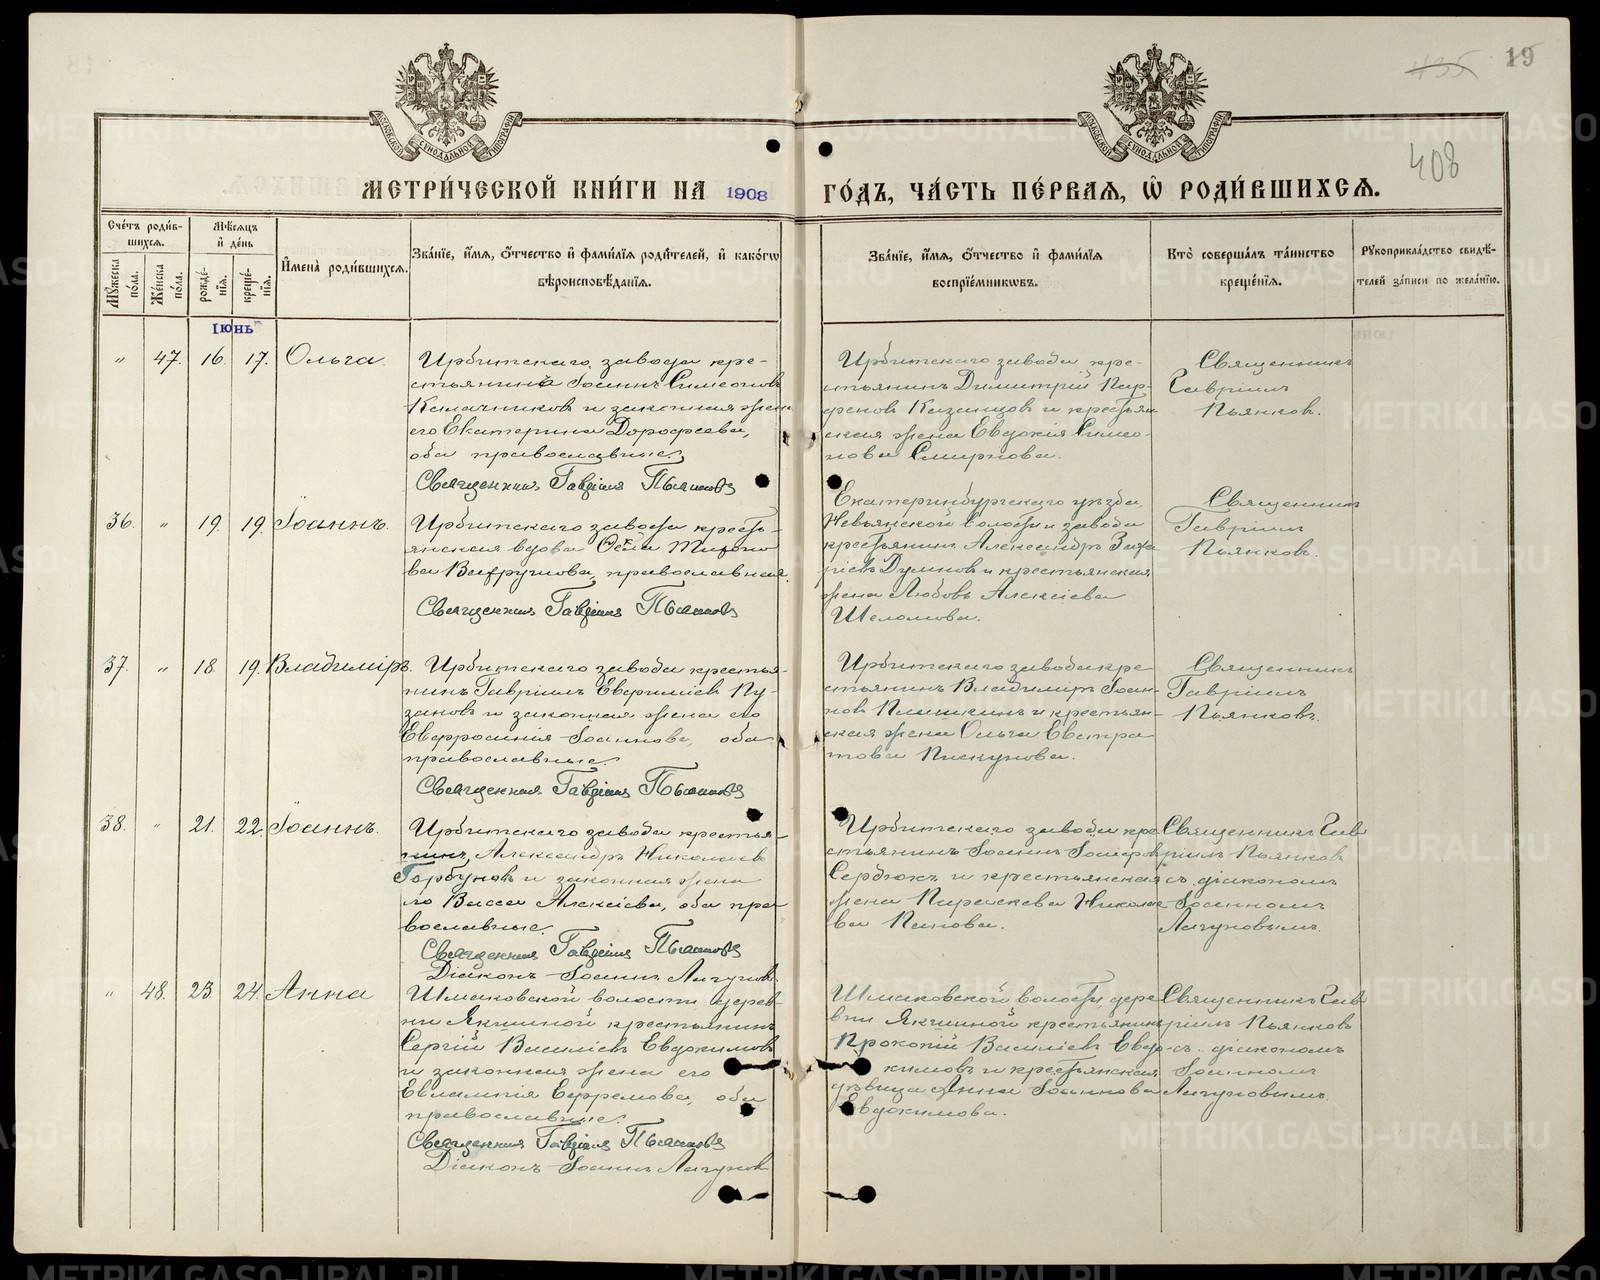 19
435
408
МОСКОВСКОЙ СѴНОДАЛЬНОЙ ТИПОГРАФІИ
МОСКОВСКОЙ СѴНОДАЛЬНОЙ ТИПОГРАФІИ
МЕТРИ́ЧЕСКОЙ КНИ́ГИ НА 1908 ГО́ДЪ, ЧА́СТЬ ПЕ́РВАЯ, Ѡ҆ РОДИ́ВШИХСѦ.
Сче́тъ роди́вшихсѧ.
Мѹ́жеска по́ла.
Же́нска по́ла.
Мѣ́сѧцъ и҆ де́нь
рожде́нїѧ.
креще́нїѧ.
И҆мена̀ роди́вшихсѧ.
Зва́нїе, и҆́мѧ, ѻ҆́тчество и҆ фами́лїѧ роди́телей, и҆ како́гѡ
вѣроисповѣ́данїѧ.
Зва́нїе, и҆́мѧ, ѻ҆́тчество и҆ фами́лїѧ
воспрїе́мникѡвъ.
Кто̀ соверша́лъ та́инство
креще́нїѧ.
Рѹкоприкла́дство свидѣ́-
телей за́писи по жела́нїю.
Іюнь
„ 47. 16. 17. Ольга.
Ирбитскаго завода кре-
стьянинъ Іоаннъ Симеоновъ
Калачниковъ и законная жена
его Екатерина Дорофеева,
оба православные.
Священникъ Гавріилъ Пьянковъ
Ирбитскаго завода кре-
стьянинъ Димитрій Пар-
феновъ Казанцовъ и крестьян-
ская жена Евдокія Симео-
нова Смирнова.
Священникъ
Гавріилъ
Пьянковъ.
36. „ 19. 19. Іоаннъ.
Ирбитскаго завода кресть-
янская вдова Ѳёкла Мироно
ва Вахрушова, православная.
Священникъ Гавріилъ Пьянковъ
Екатеринбургскаго уѣзда,
Невьянской волости и завода
крестьянинъ Александръ Заха
ріевъ Думновъ и крестьянская
жена Любовь Алексіева
Шеломова.
Священникъ
Гавріилъ
Пьянковъ.
37. „ 18. 19. Владиміръ.
Ирбитскаго завода крестья-
нинъ Гавріилъ Евфиміевъ Пу-
зановъ и законная жена его
Евфросинія Іоаннова, оба
православные.
Священникъ Гавріилъ Пьянковъ
Ирбитскаго завода кре
стьянинъ Владиміръ Іоан-
новъ Плишкинъ и крестьян-
ская жена Ольга Евстра
това Пискунова.
Священникъ
Гавріилъ
Пьянковъ.
38. „ 21. 22. Іоаннъ.
Ирбитскаго завода крестья-
нинъ, Александръ Николаевъ
Горбуновъ и законная жена
его Васса Алексіева, оба пра
вославные.
Священникъ Гавріилъ Пьянковъ
Діаконъ Іоаннъ Лагуновъ
Ирбитскаго завода кре
стьянинъ Іоаннъ Іосифовъ
Сердюкъ и крестьянская
жена Параскева Николае
ва Панова.
Священникъ Гав
ріилъ Пьянковъ
съ діакономъ
Іоанномъ
Лагуновымъ.
„ 48. 23 24. Анна
Шмаковской волости, дерев-
ни Якшиной крестьянинъ
Сергій Василіевъ Евдокимовъ
и законная жена его
Евлампія Ефремова, оба
православные.
Священникъ Гавріилъ Пьянковъ
Діаконъ Іоаннъ Лагуновъ
Шмаковской волости, дере
вни Якшиной крестьянинъ
Прокопій Василіевъ Евдо-
кимовъ и крестьянская
дѣвица Анна Іоаннова
Евдокимова.
Священникъ Гав
ріилъ Пьянковъ
съ діакономъ
Іоанномъ
Лагуновымъ.
METRIKI.GASO-URAL.RU